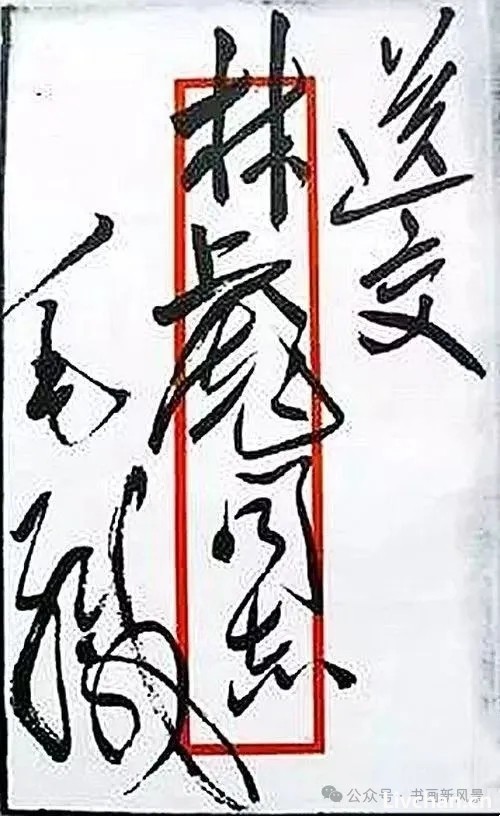 送交
林彪同志
毛缄
公众号 · 书画新风景